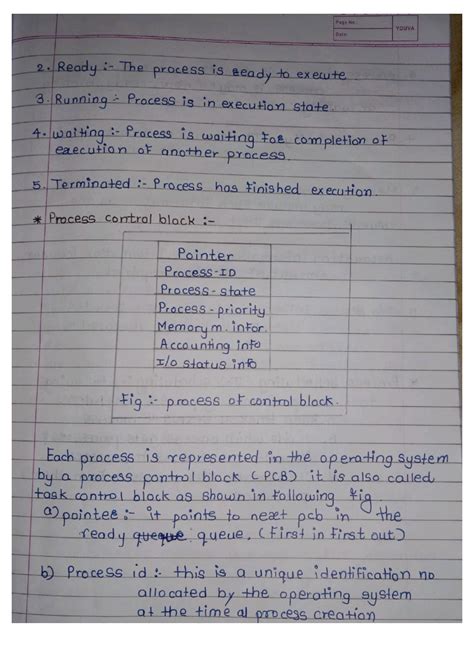 Page No.
Date
YOUVA
2. Ready :- The process is ready to execute
3. Running :- Process is in execution state.
4. waiting :- Process is waiting for completion of
execution of another process.
5. Terminated :- Process has finished execution.
* Process control block :-
Pointer
Process-ID
Process-state
Process-priority
Memory m. infor.
Accounting info
I/o status info
fig :- process of control block.
Each process is represented in the operating system
by a process control block (PCB) it is also called
task control block as shown in following fig
a) pointer :- it points to next pcb in the
ready queue. (first in first out)
b) Process id :- this is a unique identification no
allocated by the operating system
at the time of process creation